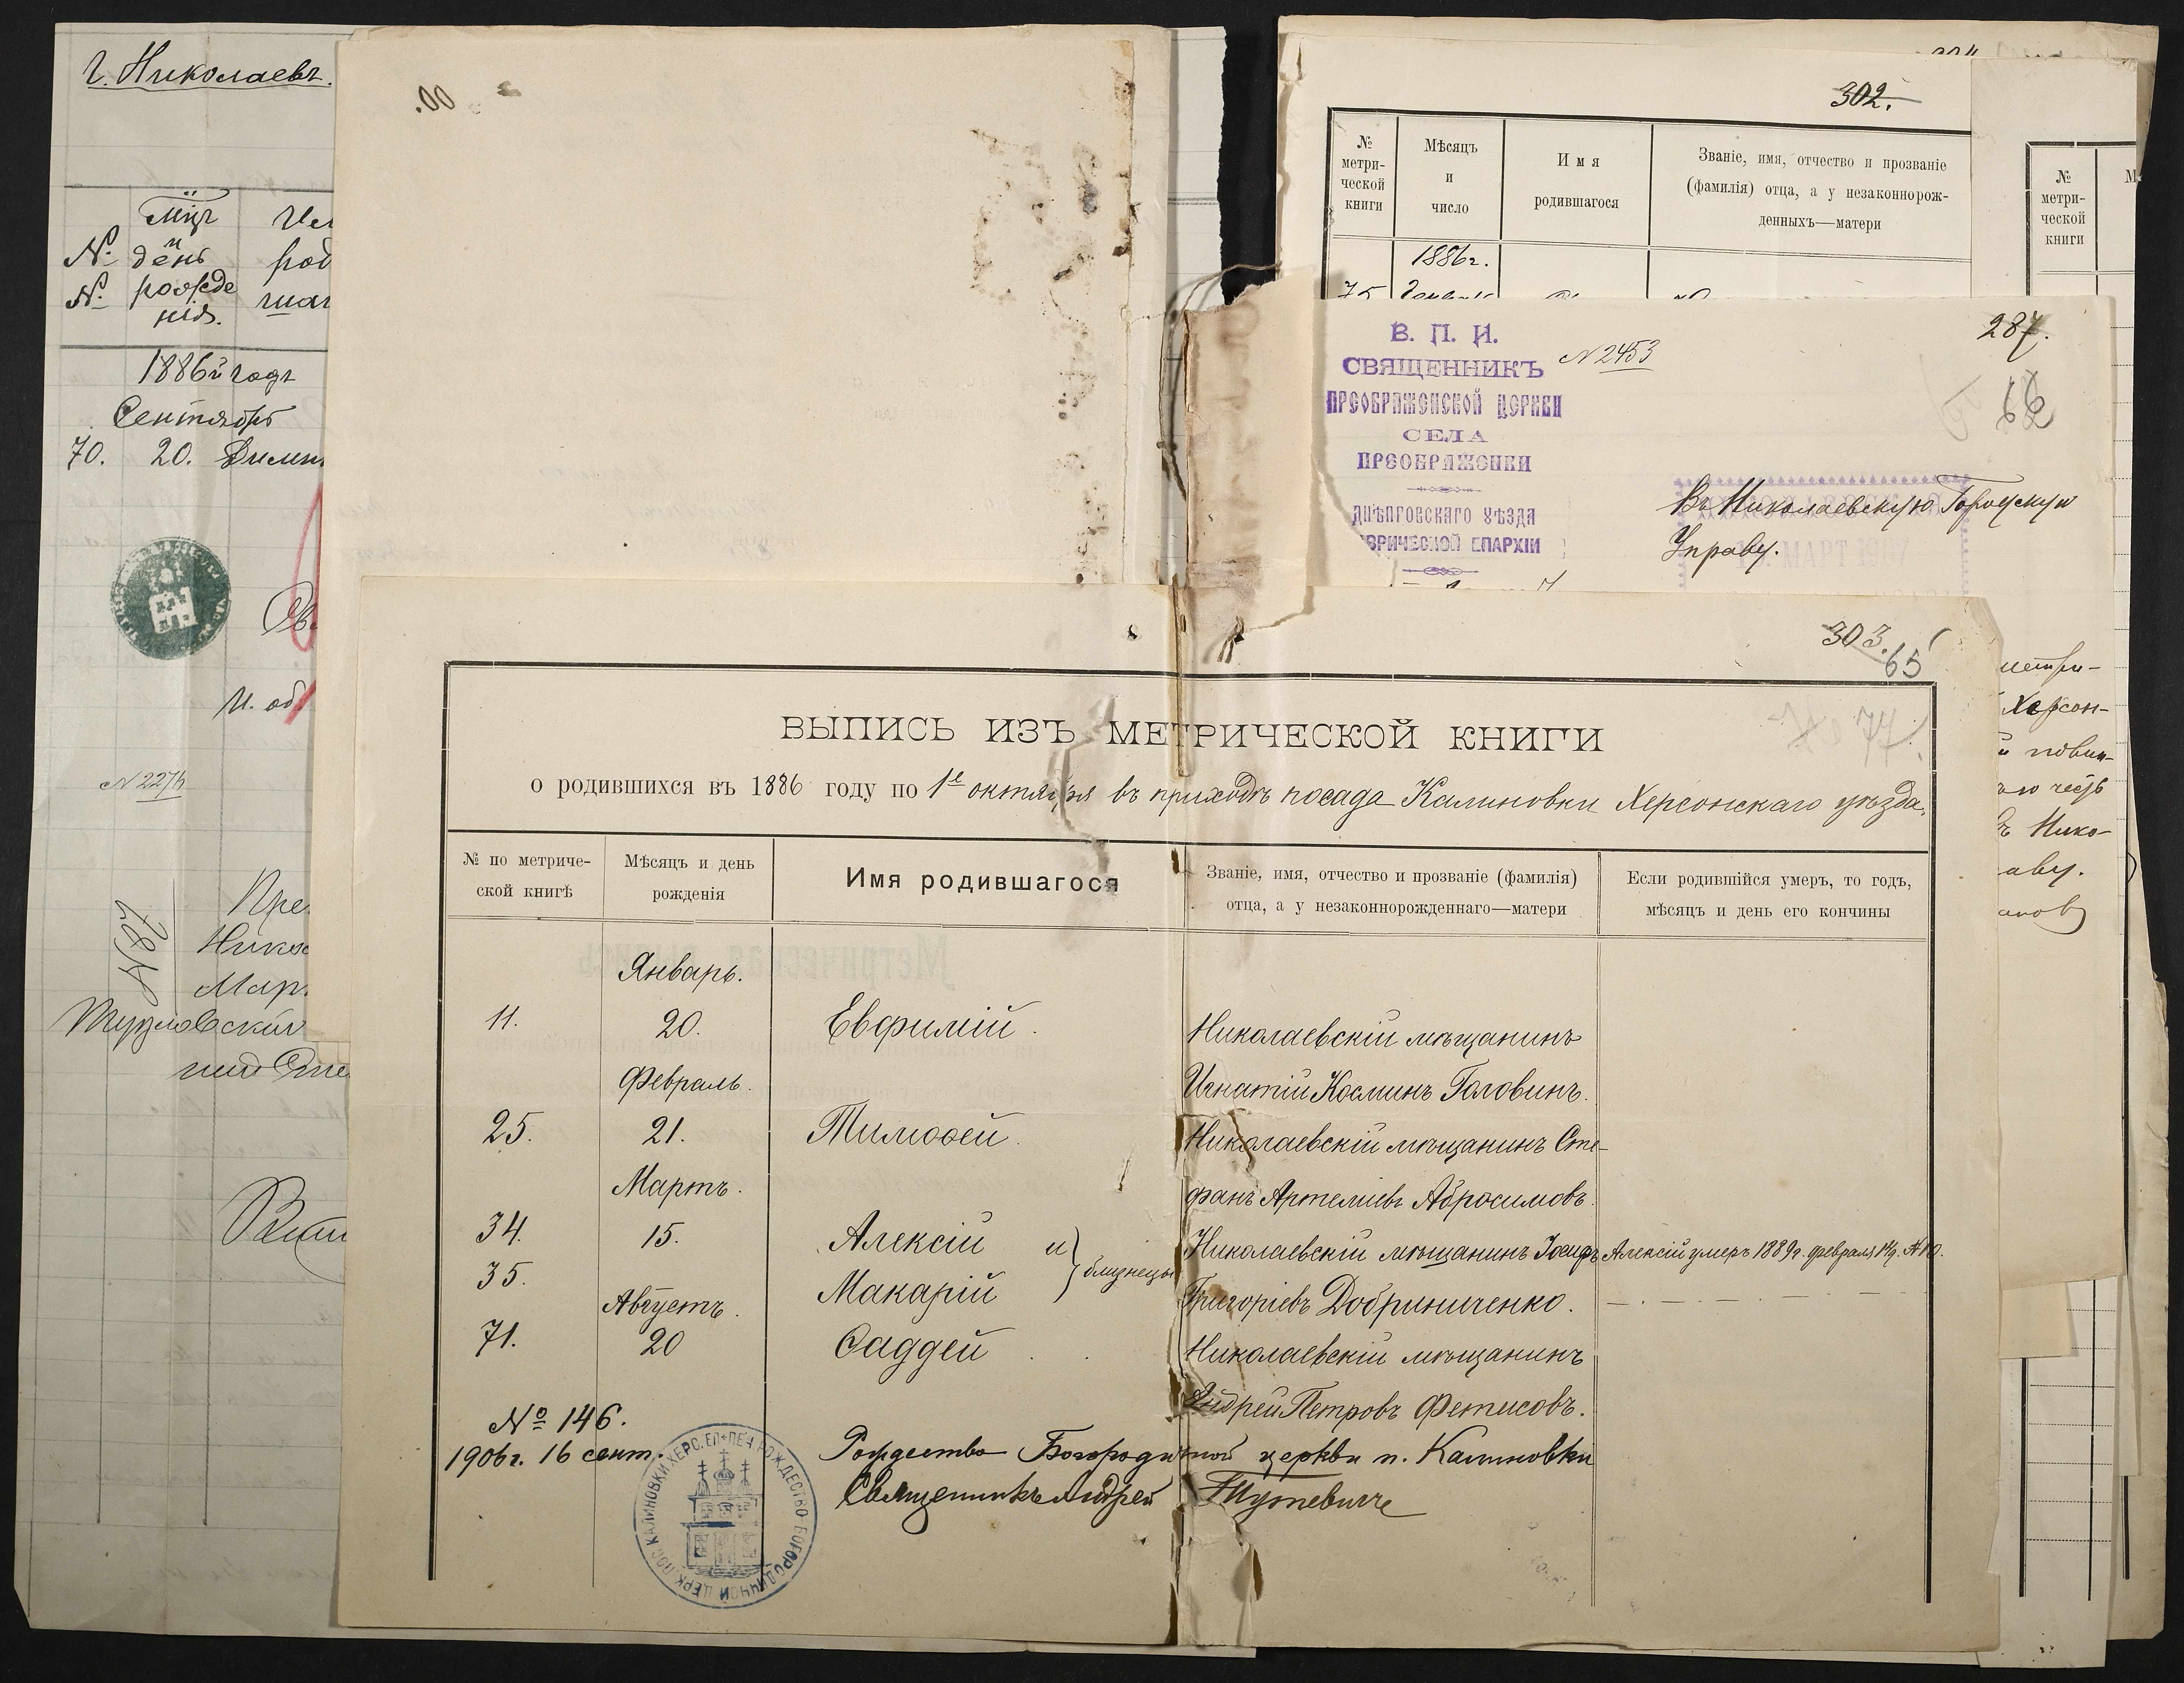 г. Николаевъ.
№
№
Мцъ
и
день
рожде
нія.
1886й годъ
Сентябрь
70. 20.
И. об
N 2276
Николаевской
302.
№
метри-
ческой
книги
Мѣсяцъ
и
число
Имя
родившагося
Званіе, имя, отчество и прозваніе
(фамилія) отца, а у незаконнорож-
денныхъ—матери
1886г.
75
№
метри-
ческой
книги
В. П. И.
СВЯЩЕННИКЪ
ПРЕОБРАЖЕНСКОЙ ЦЕРКВИ
СЕЛА
ПРЕОБРАЖЕНКИ
ДНѢПРОВСКАГО УѢЗДА
ВРИЧЕСКОЙ ЕПАРХІИ
N 2453
287.
Въ Николаевскую Городскую
Управу.
МАРТ
метри-
Херсон-
честь
Нико-
аву.
303.
65
77
ВЫПИСЬ ИЗЪ МЕТРИЧЕСКОЙ КНИГИ
о родившихся въ 1886 году по 1е октября въ приходѣ посада Калиновки Херсонскаго уѣзда.
№ по метриче-
ской книгѣ
Мѣсяцъ и день
рожденія
Имя родившагося
Званіе, имя, отчество и прозваніе (фамилія)
отца, а у незаконнорожденнаго—матери
Если родившійся умеръ, то годъ,
мѣсяцъ и день его кончины
Январь.
11. 20. Евфимій. Николаевскій мѣщанинъ
Февраль. Игнатій Косминъ Головинъ.
25. 21. Тимоѳей. Николаевскій мѣщанинъ Сте-
Мартъ. фанъ Артеміевъ Абросимовъ.
34. 15. Алексій и Николаевскій мѣщанинъ Іосифъ Алексій умеръ 1889г. февраля 14д. № 10.
близнецы
35. Макарій Григоріевъ Добриниченко.
Августъ.
71. 20 Ѳаддей Николаевскій мѣщанинъ
Андрей Петровъ Фетисовъ.
№ 146.
1906г. 16 сент. Рождество Богородичной церкви п. Калиновки
Священникъ Андрей
ПОС. КАЛИНОВКИ ХЕРС. ЕП. ПЕЧ. РОЖДЕСТВО-БОГОРОДИЧНОЙ ЦЕРК.